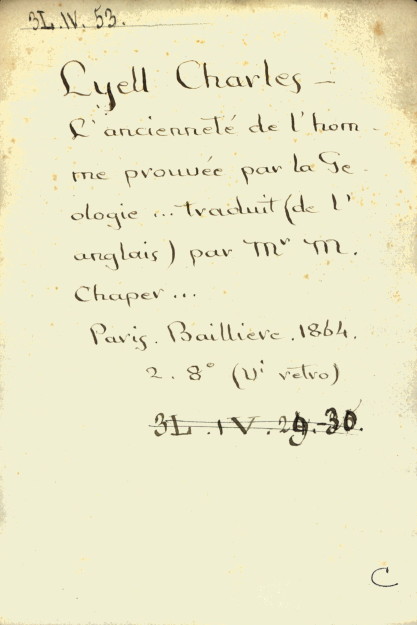 3L. IV. 53.
Lyell Charles —
L'ancienneté de l'hom-
me prouvée par la Ge-
ologie ... traduit (de l'
anglais) par Mr M.
Chaper ...
Paris. Baillière. 1864.
2. 8° (Vi retro)
3L. IV. 29.-30.
C